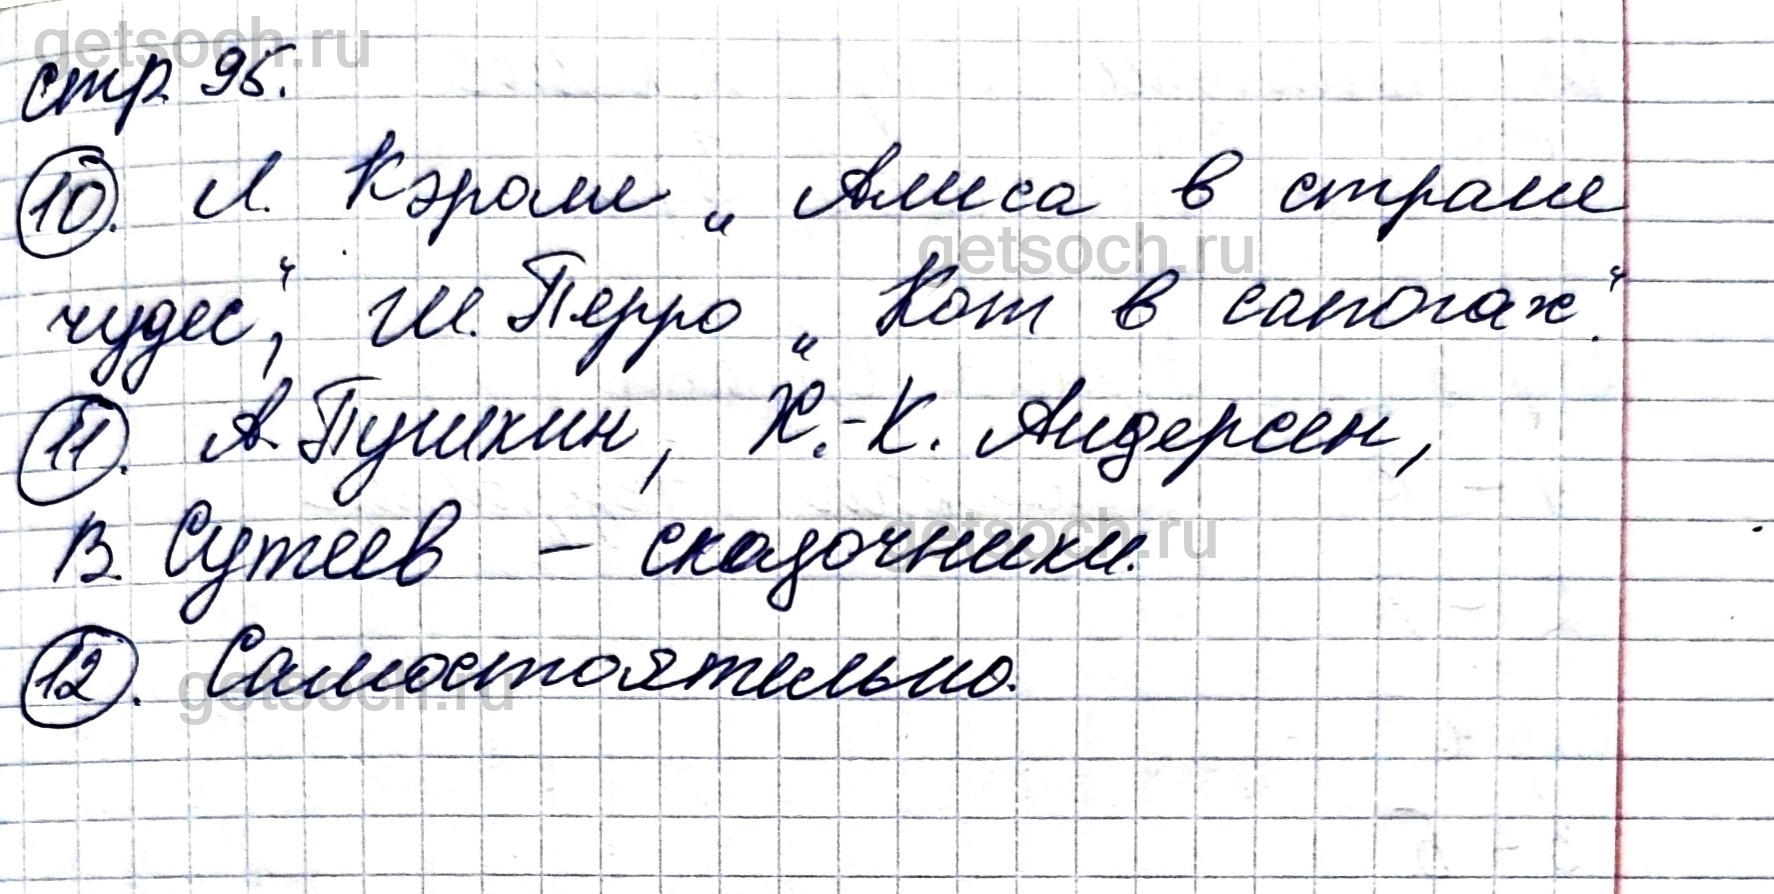 getsoch.ru
стр. 95.
10. Л. Кэролл „Алиса в стране
getsoch.ru
чудес“, Ш. Перро „Кот в сапогах“.
11. А. Пушкин, Х.-К. Андерсен,
getsoch.ru
В. Сутеев – сказочники.
12. Самостоятельно.
getsoch.ru